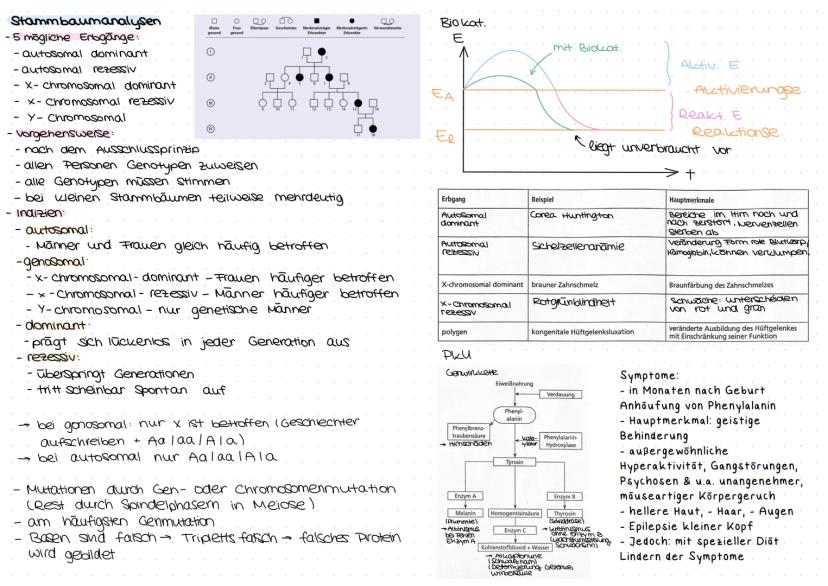 Stammbaumanalysen
- 5 mögliche Erbgänge:
- autosomal dominant
- autosomal rezessiv
- X- chromosomal dominant
- x- chromosomal rezessiv
- Y- Chromosomal
- Vorgehensweise:
- nach dem Ausschlussprinzip
- allen Personen Genotypen zuweisen
- alle Genotypen müssen stimmen
- bei kleinen Stammbäumen teilweise mehrdeutig
- Indizien:
- autosomal:
- Männer und Frauen gleich häufig betroffen
- gonosomal:
- x- chromosomal- dominant - Frauen häufiger betroffen
- x - Chromosomal - rezessiv - Männer häufiger betroffen
- Y-chromosomal - nur genetische Männer
- dominant:
- prägt sich lückenlos in jeder Generation aus
- rezessiv:
- überspringt Generationen
- tritt scheinbar Spontan auf
→ bei gonosomal: nur X ist betroffen (Geschlechter
aufschreiben + Aa | aa | A | a)
→ bei autosomal nur Aa | aa | A | a
- Mutationen durch Gen- oder Chromosomenmutation
(Rest durch Spindelphasern in Meiose)
- am häufigsten Genmutation
- Basen sind falsch → Tripletts falsch → falsches Protein
wird gebildet
Mann gesund
Frau gesund
Elternpaar
Geschwister
Merkmalsträger Erkrankter
Merkmalsträgerin Erkrankte
Verwandtenehe
I
II
III
IV
Biokat.
E
mit Biokat.
Aktiv. E
EA
Aktivierungse.
Reakt. E
ER
Reaktionse.
liegt unverbraucht vor
t
Erbgang Beispiel Hauptmerkmale
Autosomal dominant Corea Huntington Bereiche im Hirn nach und nach zerstört, Nervenzellen sterben ab
Autosomal rezessiv Sichelzellenanämie Veränderung Form rote Blutkörp., Hämoglobin, können verklumpen
X-chromosomal dominant brauner Zahnschmelz Braunfärbung des Zahnschmelzes
X-Chromosomal rezessiv Rotgrünblindheit Schwäche: unterscheiden von rot und grün
polygen kongenitale Hüftgelenksluxation veränderte Ausbildung des Hüftgelenkes mit Einschränkung seiner Funktion
PKU
Genwirkkette
Eiweißnahrung
Verdauung
Phenyl-
alanin
Phenylbrenz-
traubensäure
→ Hirnschäden
Phenylalanin-
Hydroxylase
Tyrosin
Enzym A
Enzym B
Melanin
Homogentisinsäure
Thyroxin
→ Albinismus
bei Fehlen
Enzym A
(Schilddrüse)
ohne Enzym B
Enzym C
Kohlenstoffdioxid + Wasser
→ Alkaptonurie
Wirbelsäule
Symptome:
- in Monaten nach Geburt
Anhäufung von Phenylalanin
- Hauptmerkmal: geistige
Behinderung
- außergewöhnliche
Hyperaktivität, Gangstörungen,
Psychosen & u.a. unangenehmer,
mäuseartiger Körpergeruch
- hellere Haut, - Haar, - Augen
- Epilepsie kleiner Kopf
- Jedoch: mit spezieller Diät
Lindern der Symptome